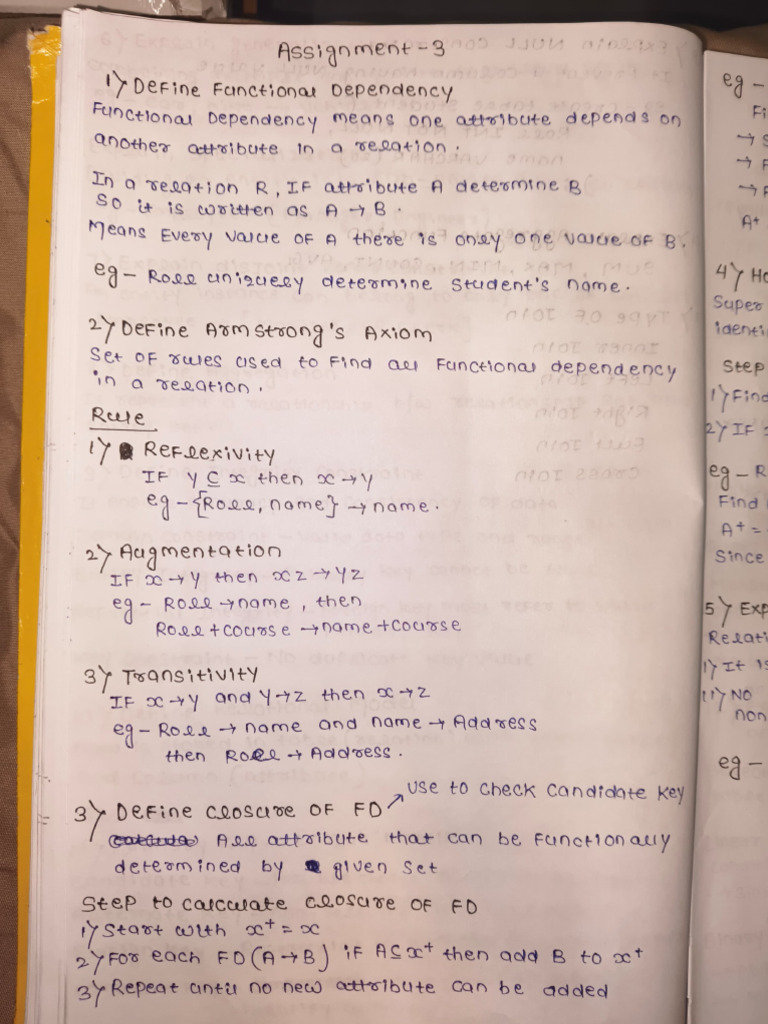 Assignment-3
1) Define Functional Dependency
Functional Dependency means one attribute depends on
another attribute in a relation.
In a relation R, IF attribute A determine B
So it is written as A → B.
Means Every value of A there is only one value of B.
eg - Roll uniquely determine Student's name.
2) Define Armstrong's Axiom
Set of rules used to find all Functional dependency
in a relation.
Rule
1) Reflexivity
IF Y ⊆ x then x → Y
eg - {Roll, name} → name.
2) Augmentation
IF x → Y then xz → Yz
eg - Roll → name, then
Roll + course → name + course
3) Transitivity
IF x → Y and Y → z then x → z
eg - Roll → name and name → Address
then Roll → Address.
3) Define closure OF FD
use to check candidate key
All attribute that can be Functionally
determined by given set
Step to calculate closure OF FD
1) Start with x+ = x
2) For each FD (A → B) if A ⊆ x+ then add B to x+
3) Repeat until no new attribute can be added
eg -
Fi
→ S
→ F
→ F
A+
4) Ho
Super
identi
Step
1) Find
2) IF
eg - R
Find
A+ =
Since
5) Exp
Relati
1) It is
11) No
non
eg -